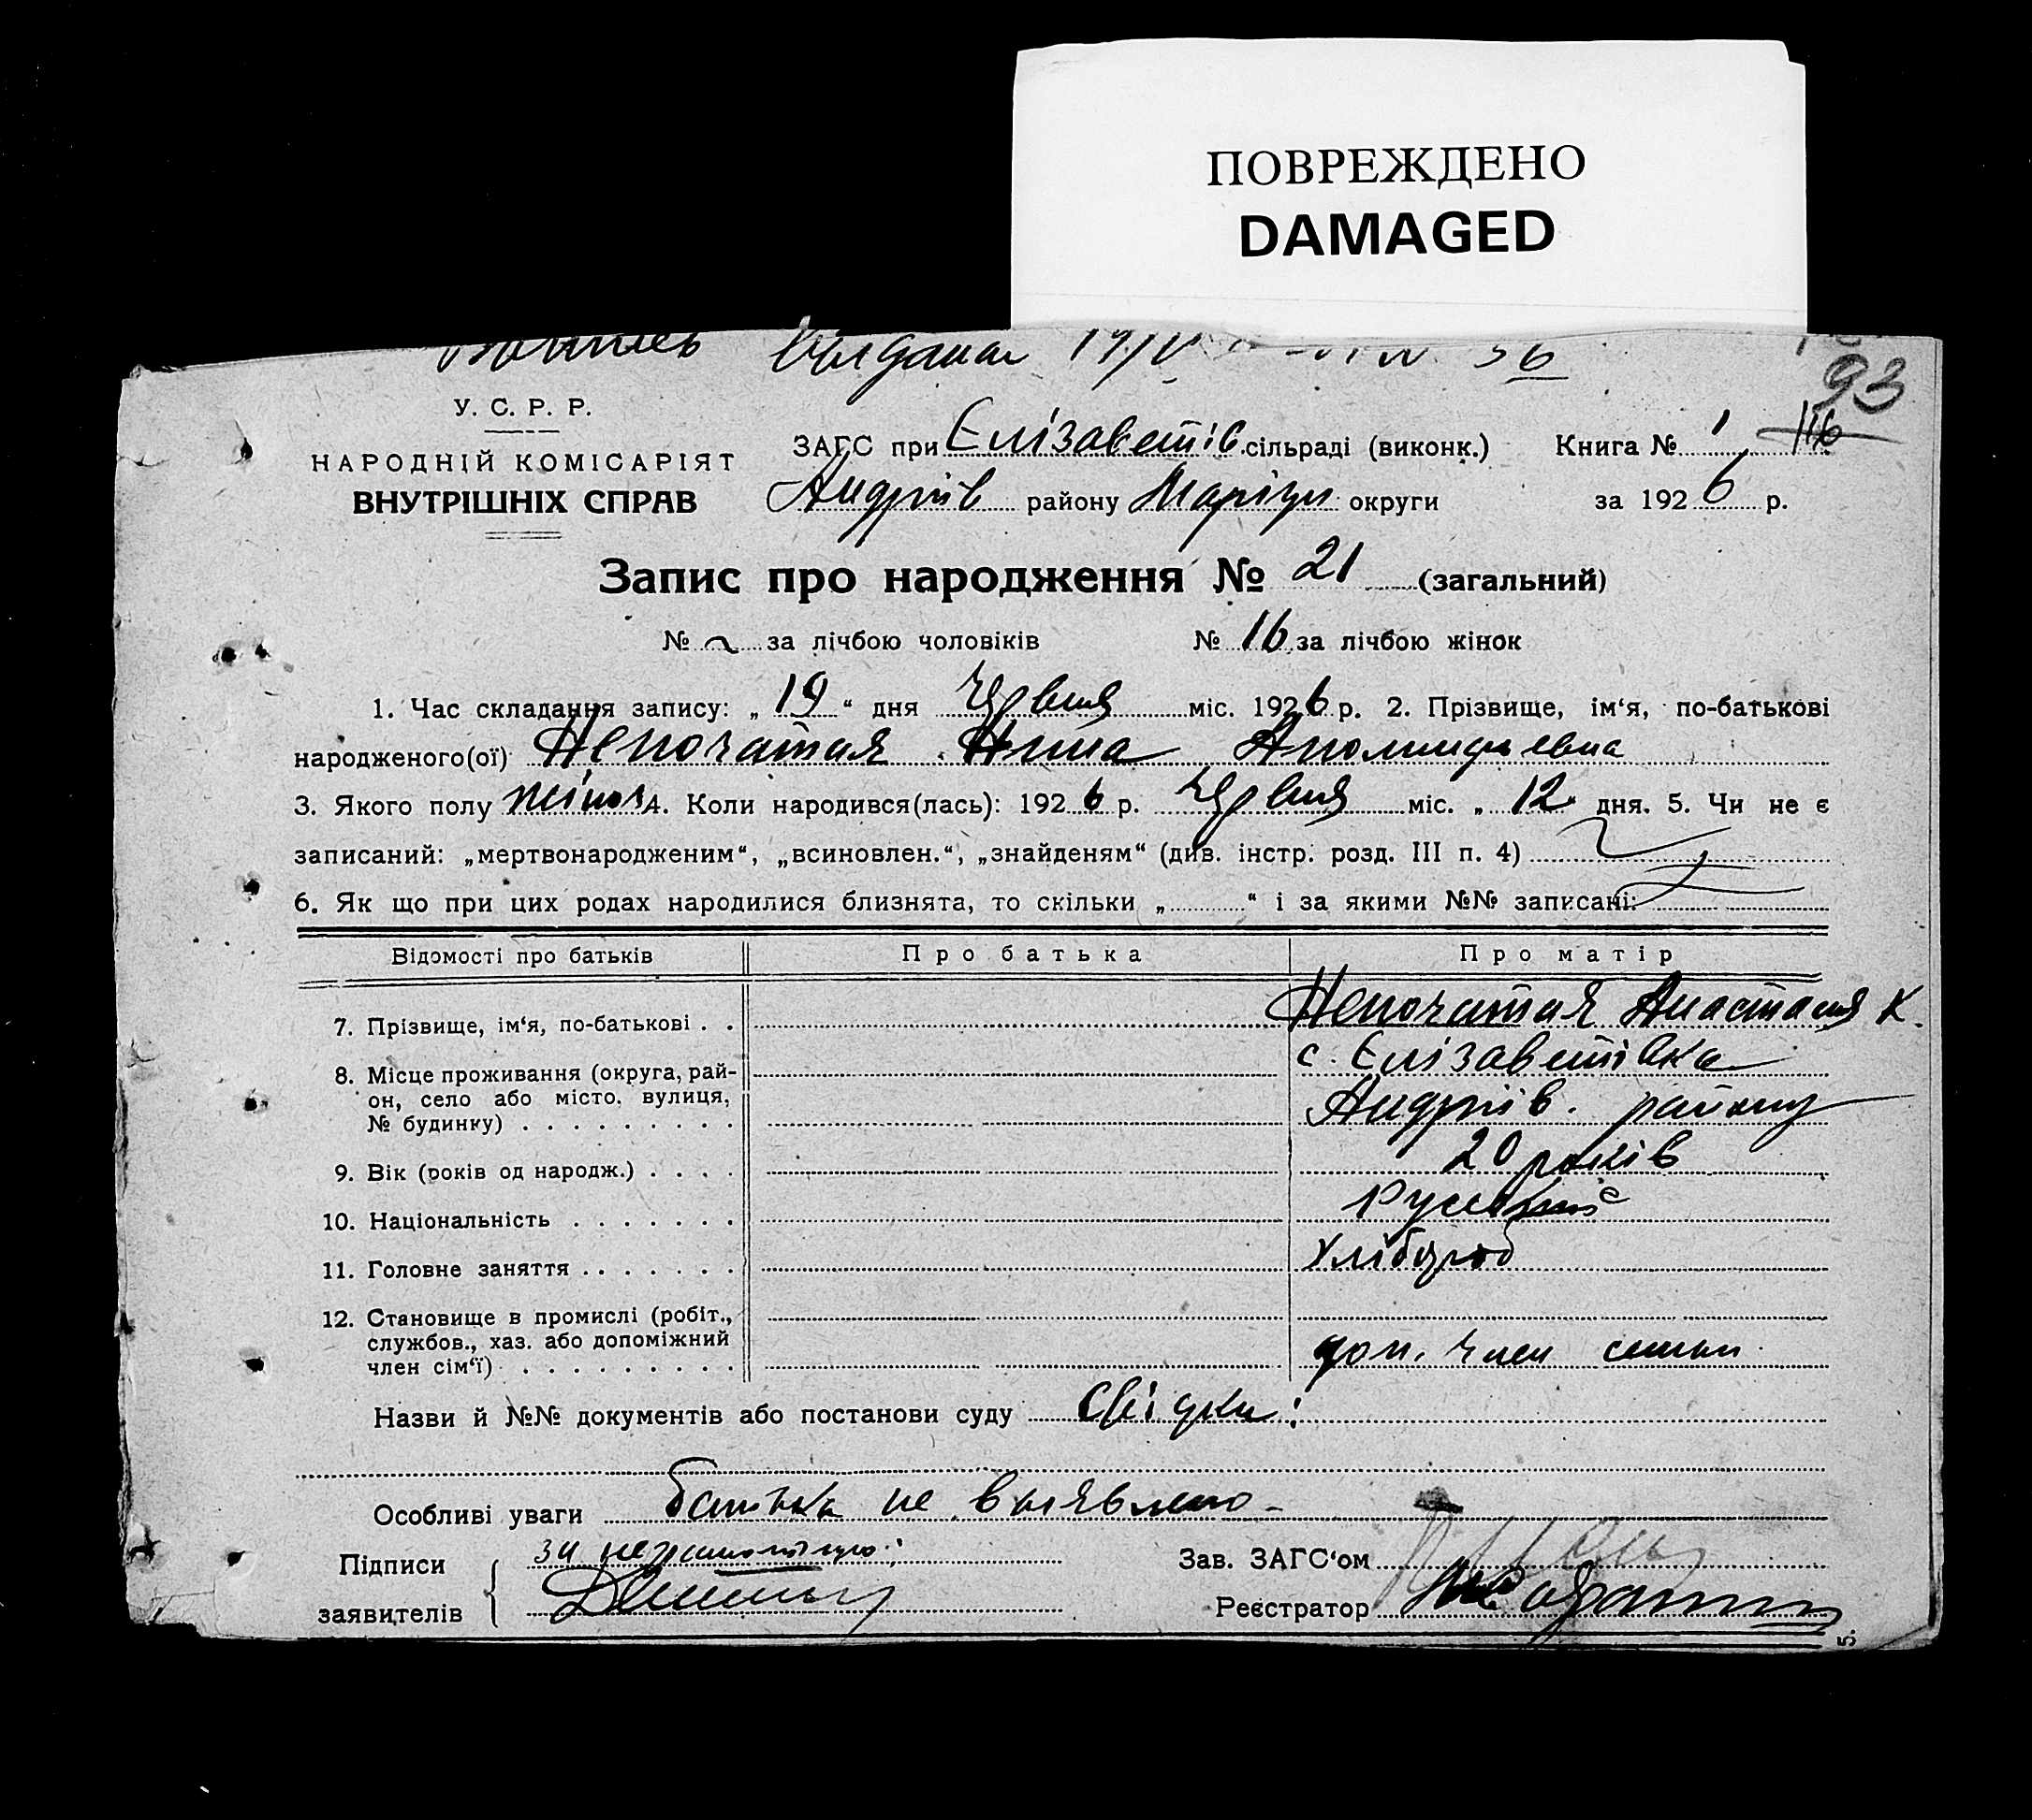 ПОВРЕЖДЕНО
DAMAGED
Видана 19/IV 36
93
У. С. Р. Р.
НАРОДНІЙ КОМІСАРІЯТ
ВНУТРІШНІХ СПРАВ
ЗАГС при Єлізаветів сільраді (виконк.) Книга № 1 116
Андріїв району Маріуп округи за 1926 р.
Запис про народження № 21 (загальний)
№ за лічбою чоловіків № 16 за лічбою жінок
1. Час складання запису: „19“ дня Червня міс. 1926 р. 2. Прізвище, ім‘я, по-батькові
народженого(ої) Непочатая Анна
3. Якого полу жіноч 4. Коли народився(лась): 1926 р. Червня міс. „12 дня. 5. Чи не є
записаний: „мертвонародженим“, „всиновлен.“, „знайденям“ (див. інстр. розд. III п. 4)
6. Як що при цих родах народилися близнята, то скільки „ “ і за якими №№ записані:
Відомості про батьків Про батька Про матір
7. Прізвище, ім‘я, по-батькові . . Непочатая Анастасия К.
8. Місце проживання (округа, рай- с. Єлізаветівка
он, село або місто, вулиця, Андріїв. району
№ будинку)
9. Вік (років од народж.) 20 років
10. Національність Руська
11. Головне заняття Хлібороб
12. Становище в промислі (робіт.,
службов., хаз. або допоміжний
член сім‘ї) доп. член семьи
Назви й №№ документів або постанови суду Свідки:
Особливі уваги батька не выявлено
Підписи за неграмотную:
заявителів
Зав. ЗАГС‘ом
Реєстратор
5.